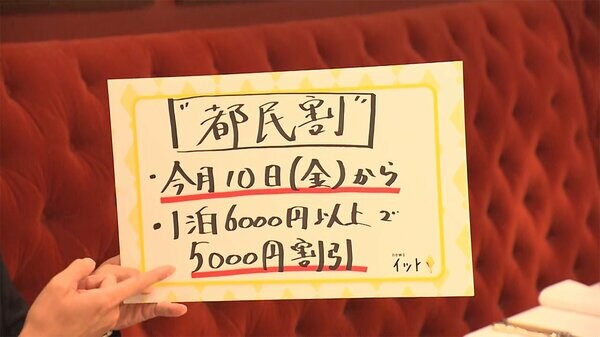 "都民割"
・今月10日(金)から
・1泊6000円以上で
5000円割引
イット!